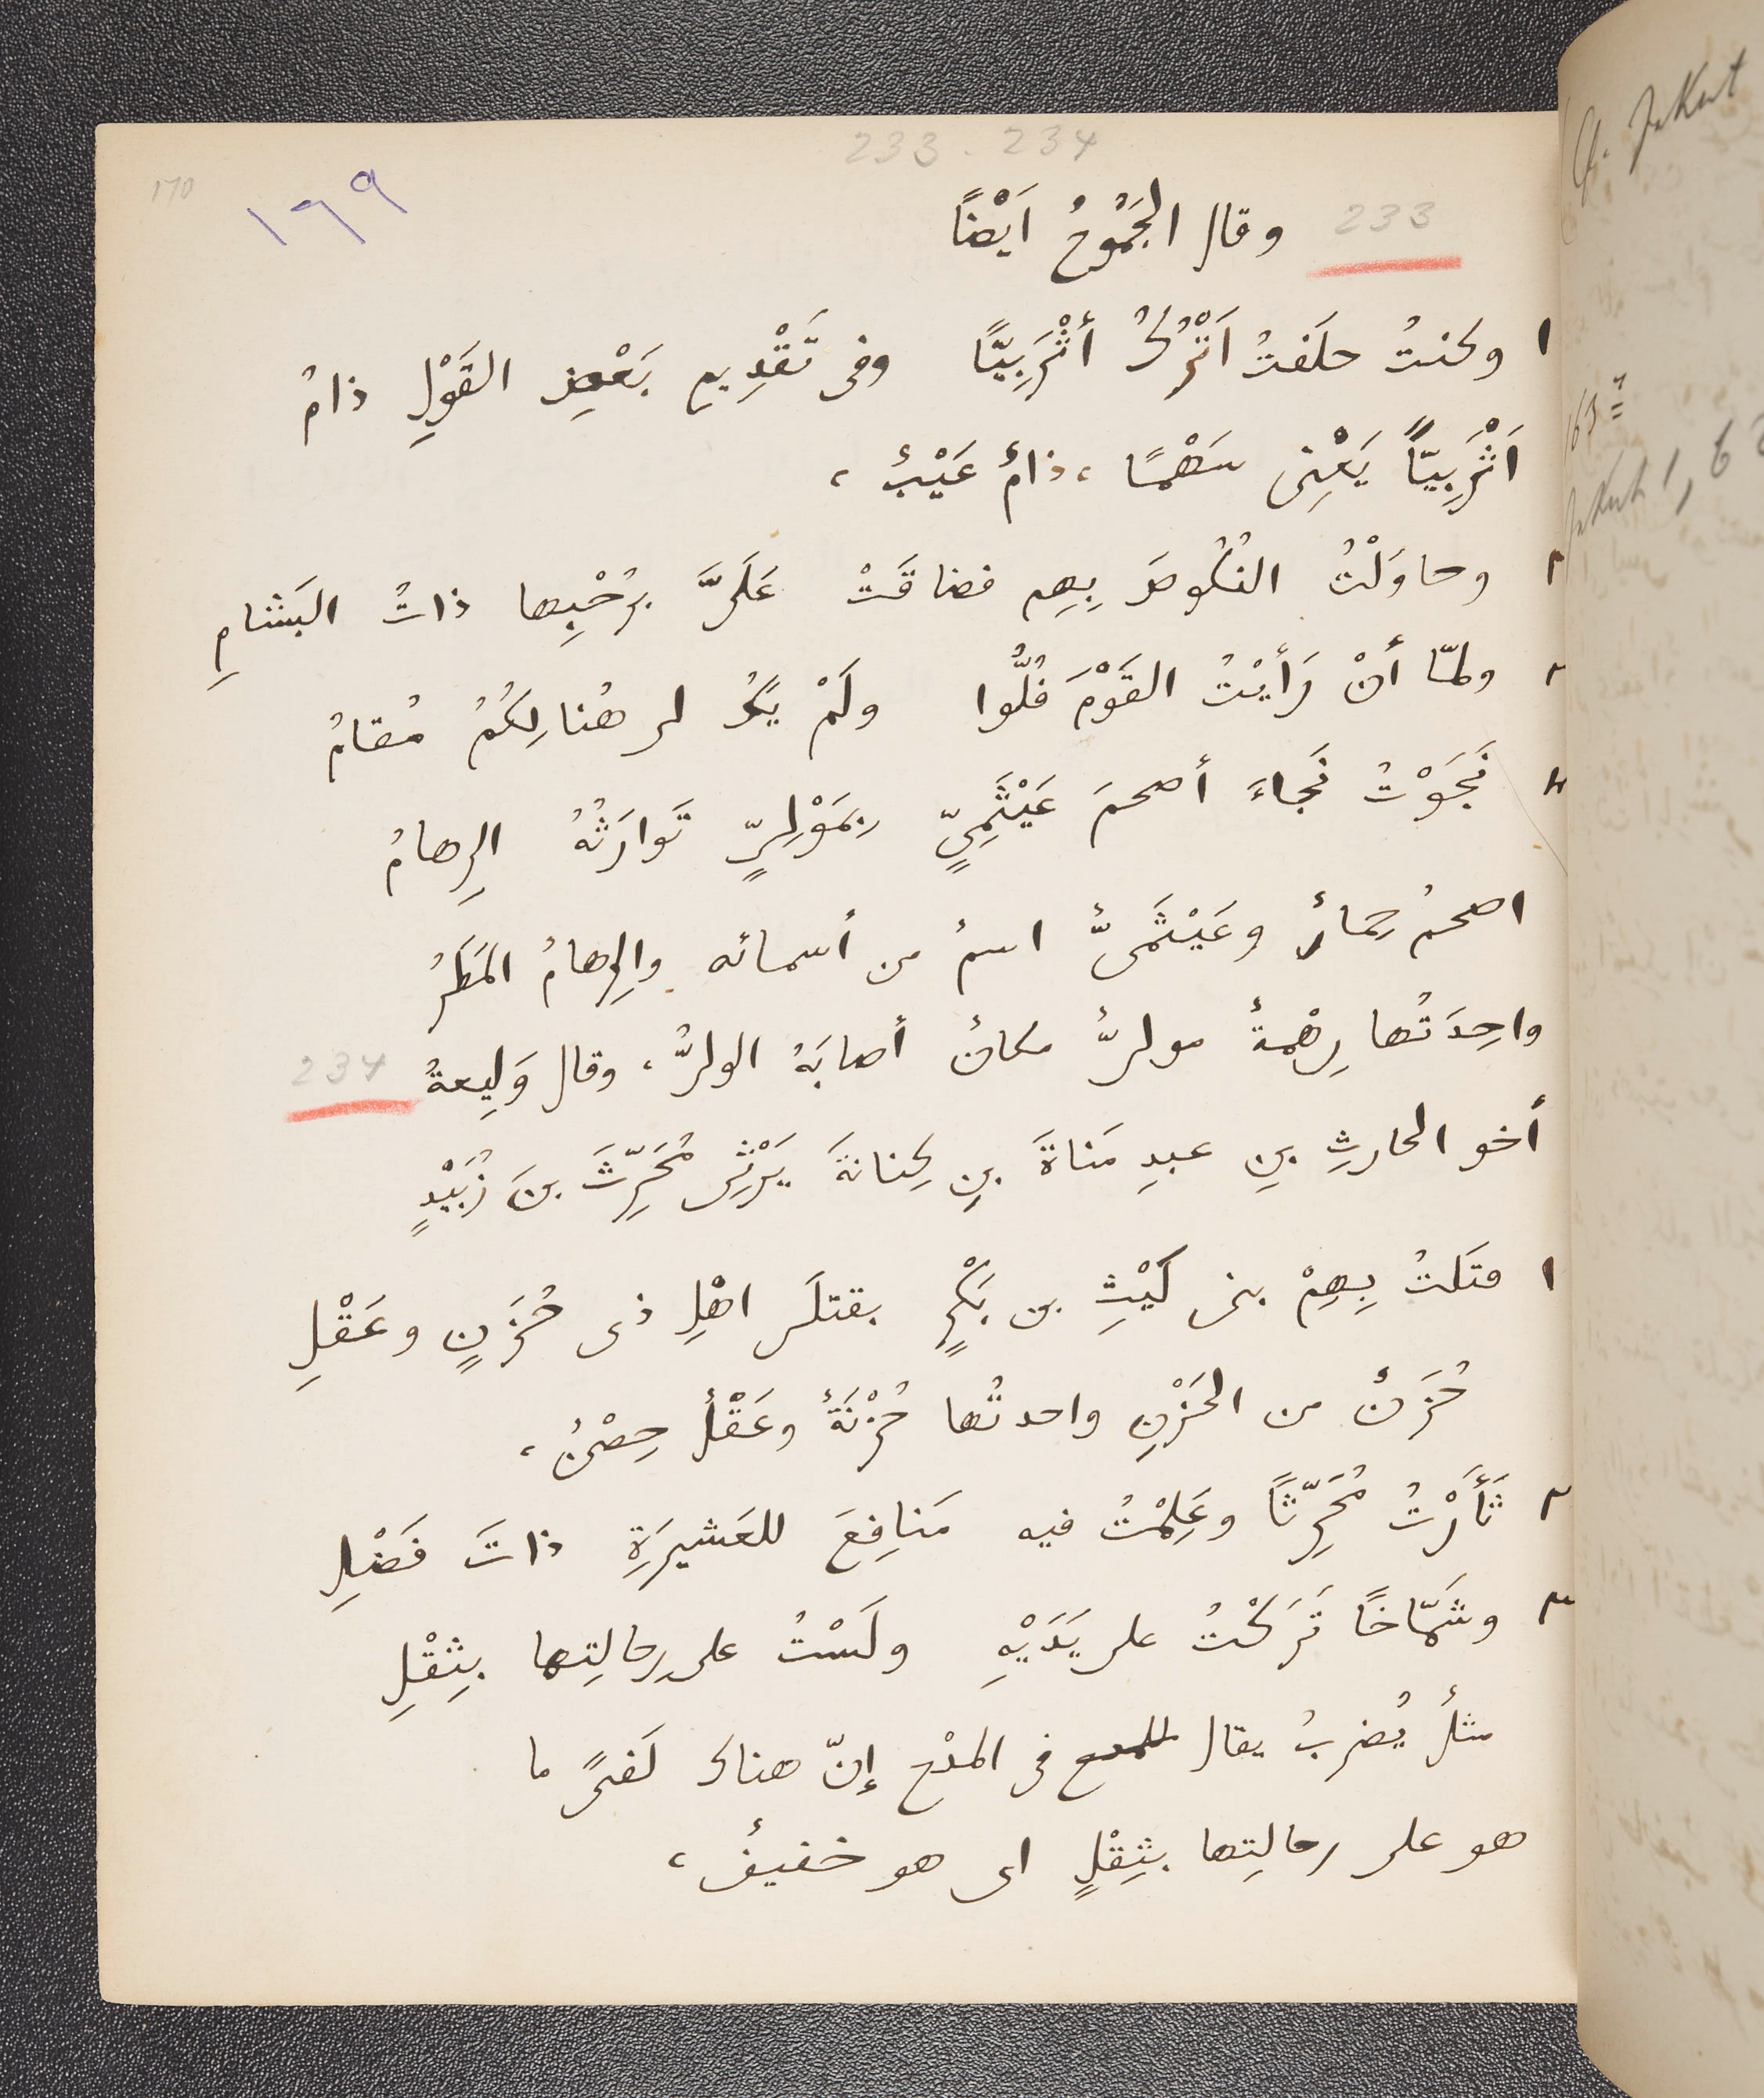 233 . 234
170
١٦٩
233 وقال الجَمُوحُ اَيْضًا
١ وكنتُ حلَفتُ اَتْرُكُ أثْرَبِيًّا وفى تَقْدِيمِ بَعْضِ القَوْلِ ذامُ
اَثْرَبِيّاً يَعْنِى سَهْمًا ، ذامٌ عَيْبٌ ،
٢ وحاوَلْتُ النُكُوصَ بِهِم فضاقَتْ عَلَىَّ بِرُحْبِها ذاتُ البَشامِ
٣ ولمّا أنْ رَأَيْتُ القَوْمَ فُلُّوا ولَمْ يَكُ لى هُنالِكُمُ مُقامُ
٤ نَجَوْتُ نَجاءَ أصحمَ عَيْثَمِىٍّ بِمَوْلِىٍّ تَوارَثُهُ الرِهامُ
اصحمُ حِمارٌ وعَيْثَمىٌّ اسمٌ من أسمائه والرِهامُ المَطَرُ
واحِدَتُها رِهْمةٌ مولىٌّ مكانٌ أصابَهُ الولىُّ ، وقال وَلِيعةُ 234
أخو الحارثِ بنِ عبدِ مَناةَ بنِ كِنانةَ يَرْثِى مُحَرِّثَ بنَ زُبَيْدٍ
١ قتَلتُ بِهِمْ بنى لَيْثِ بن بَكْرٍ بقتلَى اهْلِ ذى حُزَنٍ وعَقْلِ
حُزَنٌ من الحَزْنِ واحدتُها حُزْنَةٌ وعَقْلٌ حِصْنٌ ،
٢ ثَأَرْتُ مُحَرِّثًا وعَلِمْتُ فيه مَنافِعَ للعَشيرَةِ ذاتَ فَضْلِ
٣ وشَمّاخًا تَرَكْتُ على يَدَيْهِ ولَسْتُ على رِحالِتِها بِثِقْلِ
مثلٌ يُضربُ يقال للمدح فى المدْح إنّ هناك لَفتًى ما
هو على رحالِتِها بِثِقْلٍ اى هو خفيفٌ ،
Jakut